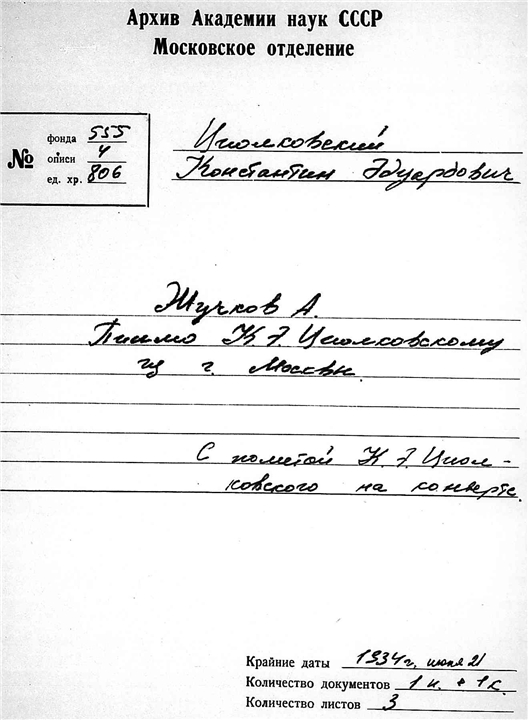 Архив Академии наук СССР
Московское отделение
№
фонда 555
описи 4
ед. хр. 806
Циолковский
Константин Эдуардович
Жучков А.
Письмо К Э Циолковскому
из г. Москвы.
С пометой К. Э. Циол-
ковского на конверте.
Крайние даты 1934 г., 21
Количество документов 1 п. + 1 к.
Количество листов 3